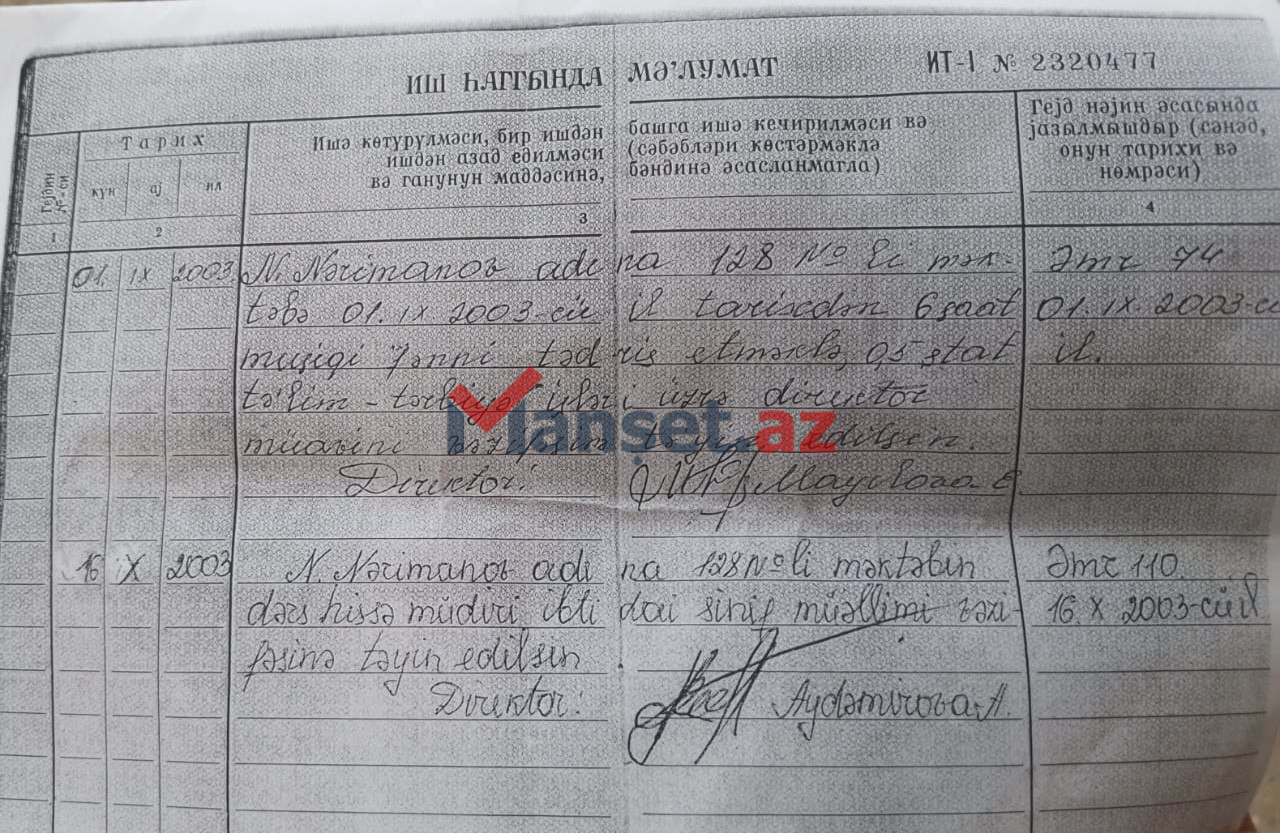 ИШ ҺАГГЫНДА МӘ’ЛУМАТ ИТ-I № 2320477
Гејдин №-си
Тарих
күн ај ил
Ишә көтүрүлмәси, бир ишдән башга ишә кечирилмәси вә
ишдән азад едилмәси (сәбәбләри көстәрмәклә
вә ганунун маддәсинә, бәндинә әсасланмагла)
Гејд нәјин әсасында
јазылмышдыр (сәнәд,
онун тарихи вә
нөмрәси)
1 2 3 4
01. IX 2003 N. Nərimanov adına 128 № li mək- Əmr 74
təbə 01.IX 2003-cü il tarixdən 6 saat 01.IX.2003-cü
musiqi fənni tədris etməklə, 0,5 ştat il.
təlim-tərbiyə işləri üzrə direktor
müavini vəzifəsinə təyin edilsen.
Direktor: Mayılova E
16 X 2003 N. Nərimanov adına 128 № li məktəbin Əmr 110.
dərs hissə müdiri, ibtidai sinif müəllimi vəzi- 16.X 2003-cü il
fəsinə təyin edilsin.
Direktor: Aydəmirova A.
Manşet.az